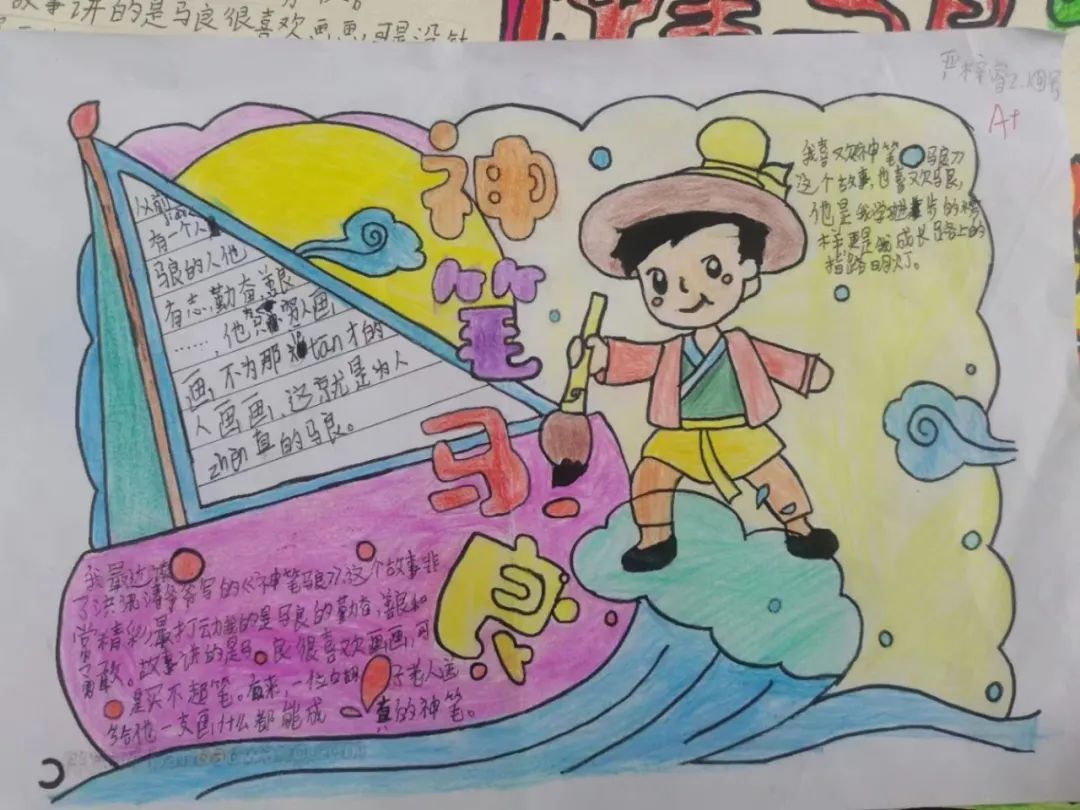 故事讲的是马良很喜欢画画,可是没钱
A+
神
笔
马
良
从前
有一个人
马良的人他
有志,勤奋,善良
……,他 穷人画
画,不为那 tan才的
人画画,这就是为人
zhēn真的马良。
我喜欢神笔马良
这个故事,也喜欢马良,
他是我学进步的榜
样更是我成长路上的
指路明灯。
我最近读
了洪汛涛爷爷写的《神笔马良》,这个故事非
常精彩,最打动我的是马良的勤奋,善良和
勇敢。故事讲的是马良很喜欢画画,可
是买不起笔。有来,一位白胡子老人送
给他一支画什么都能成真的神笔。